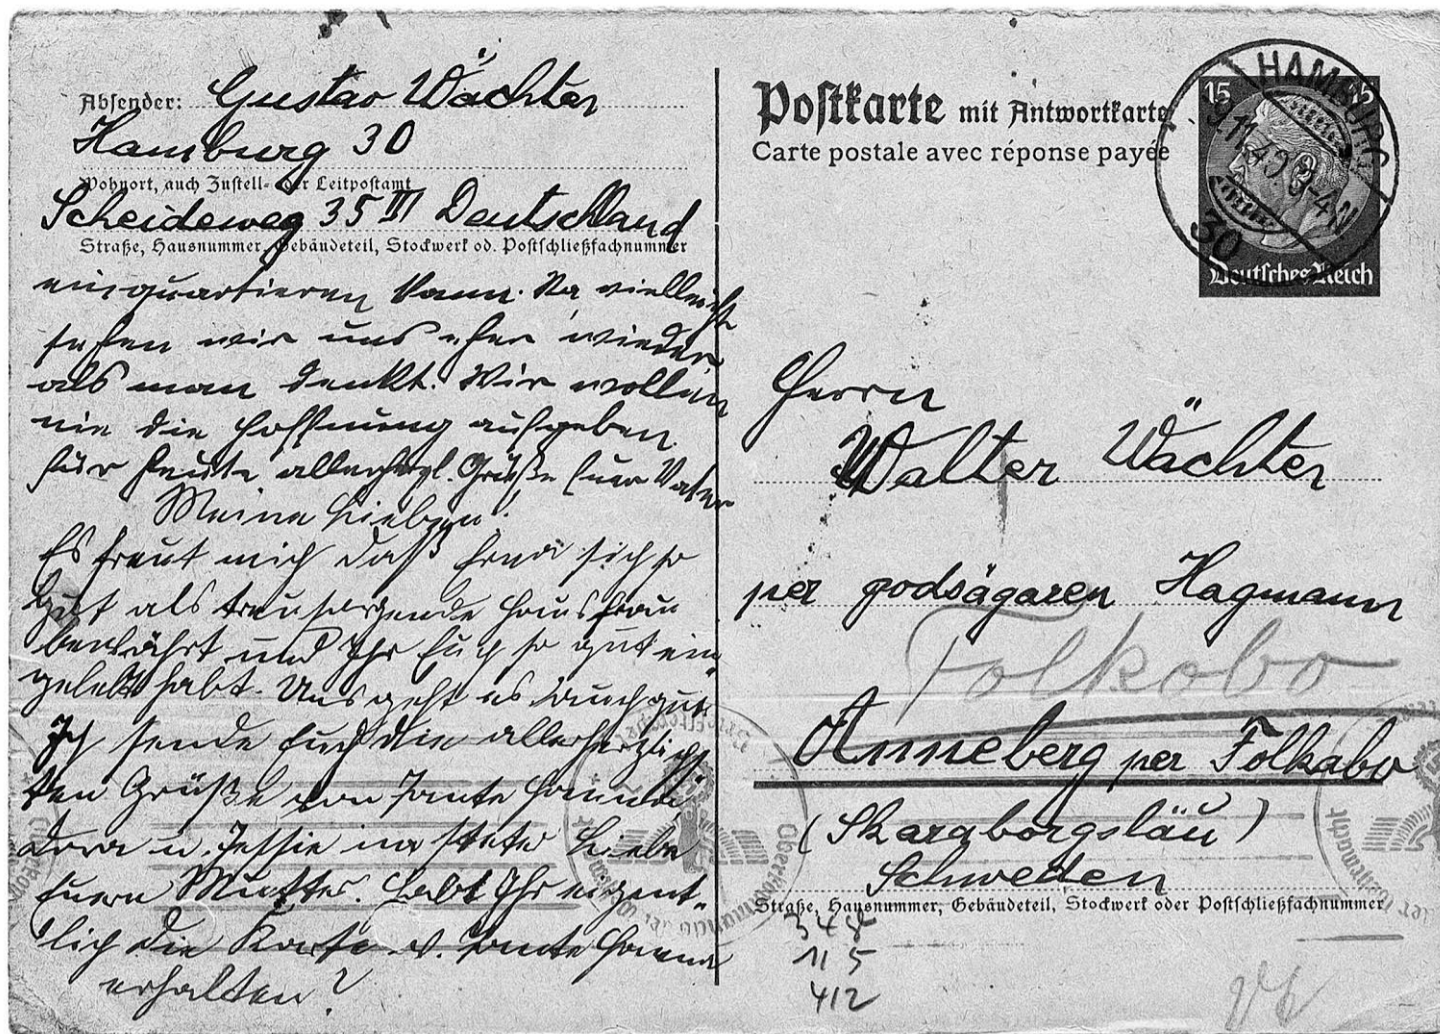 Absender: Gustav Wächter
Hamburg 30
Wohnort, auch Zustell- oder Leitpostamt
Scheideweg 35 III Deutschland
Straße, Hausnummer, Gebäudeteil, Stockwerk od. Postschließfachnummer
einquartieren kann. Na vielleicht
sehen wir uns eher wieder
als man denkt. Wir wollen
nie die Hoffnung aufgeben.
Für heute allerherzl. Grüße Euer Vater
Meine Lieben!
Es freut mich daß sich so
gut als treusorgende Hausfrau
bewährt und Ihr Euch so gut ein-
gelebt habt. Uns geht es auch gut.
Ich sende Euch die allerherzlichs-
ten Grüße von Tante Hanna
Dora u. Jessie in steter Liebe
Euere Mutter. Habt Ihr eigent-
lich die Karte v. Tante Hanna
erhalten?
Postkarte mit Antwortkarte
Carte postale avec réponse payée
15 15
HAMBURG
30
Deutsches Reich
Herrn
Walter Wächter
per godsägaren Hagmann
Folkabo
Anneberg per Folkabo
(Skaraborgslän)
Schweden
Straße, Hausnummer, Gebäudeteil, Stockwerk oder Postschließfachnummer
348
115
412
Oberkommando der Wehrmacht